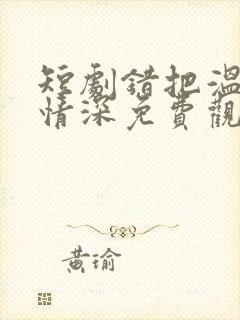 短劇錯把溫
情深免費觀
黃瑜